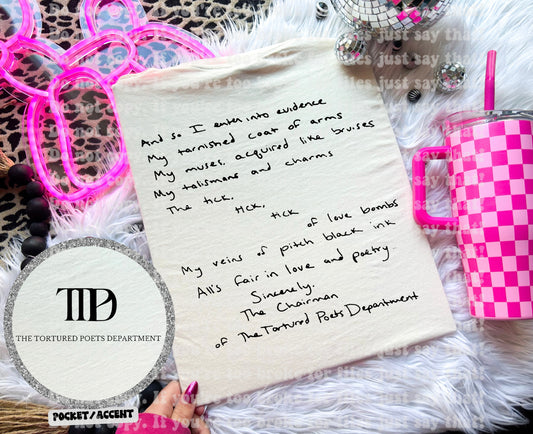 And so I enter into evidence
My tarnished coat of arms
My muses, acquired like bruises
My talismans and charms
The tick,
tick,
tick
of love bombs
My veins of pitch black ink
All's fair in love and poetry..
Sincerely,
The Chairman
of The Tortured Poets Department
TTPD
THE TORTURED POETS DEPARTMENT
POCKET/ACCENT